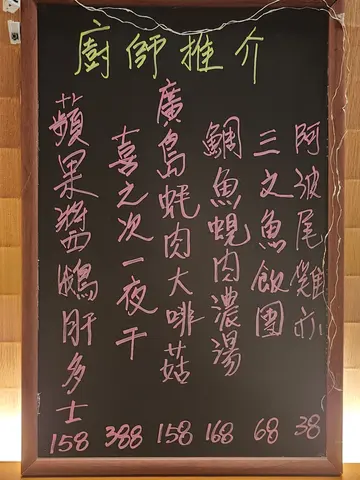 廚師推介
阿波尾雞 38
三文魚飯團 68
鯛魚蜆肉濃湯 168
廣島蚝肉大啡菇 158
喜之次一夜干 388
蘋果醬鵝肝多士 158